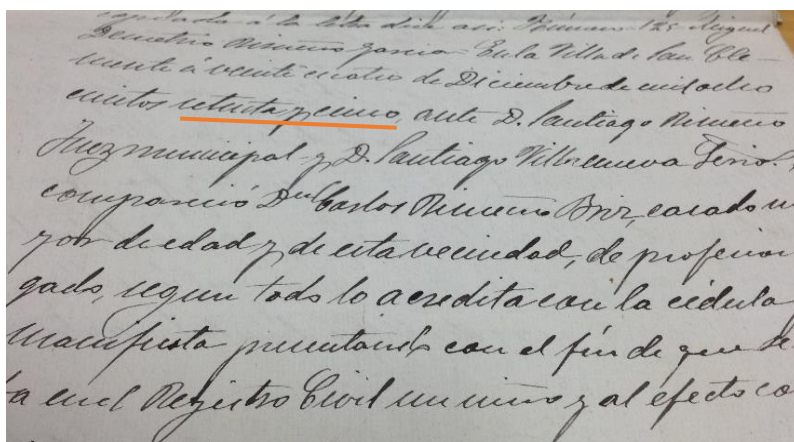 á la letra dice así: Número 125 Miguel
Demetrio Rimeno Garcia En la Villa de San Cle-
mente á veinte cuatro de Diciembre de mil ocho
cientos setenta y cinco, ante D. Santiago
Juez municipal y D. Santiago Villanueva
compareció Dn Carlos casado
yor de edad y de esta vecindad, de profesion
gado, segun todo lo acredita con la cédula
manifiesta presentando con el fin de que se
ta en el Registro Civil un niño y al efecto co